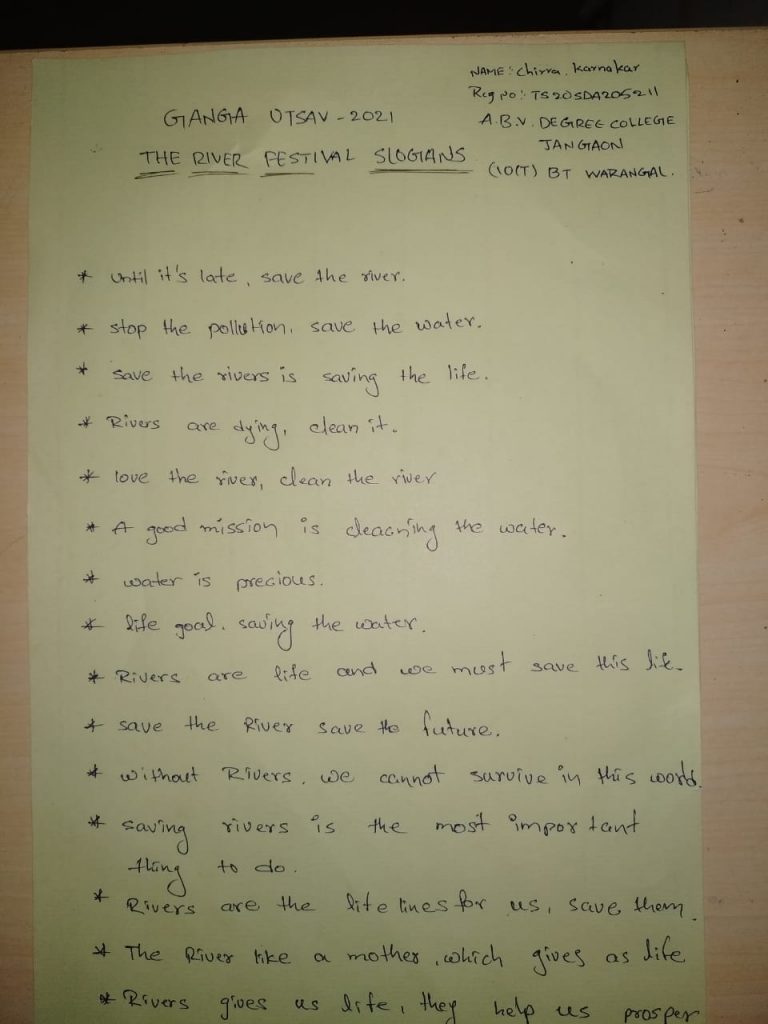 NAME: Chirra. Karnakar
Reg no: TS20SDA205211
GANGA UTSAV - 2021
A.B.V. DEGREE COLLEGE
JANGAON
THE RIVER FESTIVAL SLOGANS
(10(T) BT WARANGAL.
* Until it's late, save the river.
* stop the pollution, save the water.
* save the rivers is saving the life.
* Rivers are dying, clean it.
* love the river, clean the river
* A good mission is cleacning the water.
* water is precious.
* life goal. saving the water.
* Rivers are life and we must save this life.
* save the River save the future.
* without Rivers. we cannot survive in this world.
* saving rivers is the most important
thing to do.
* Rivers are the life lines for us, save them.
* The River like a mother, which gives as life
* Rivers gives us life, they help us prosper